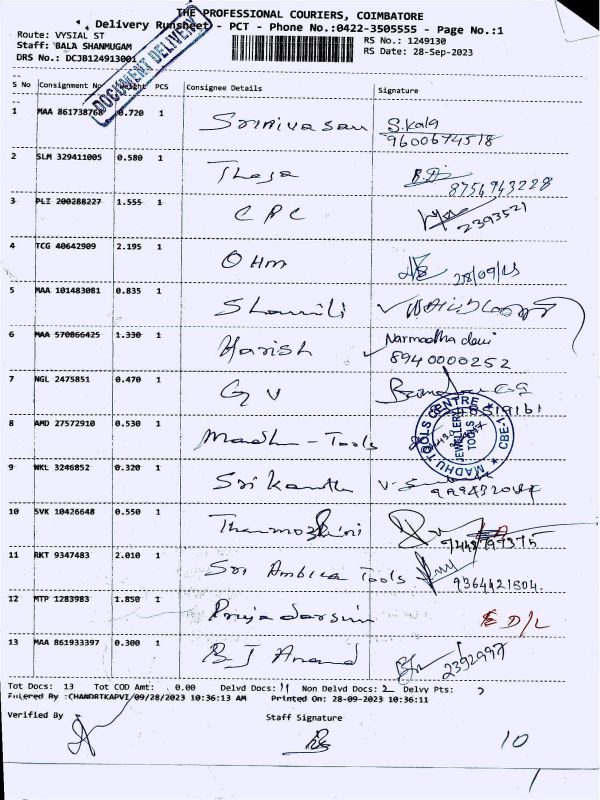 THE PROFESSIONAL COURIERS, COIMBATORE
Delivery Runsheet - PCT - Phone No.:0422-3505555 - Page No.:1
Route: VYSIAL ST RS No.: 1249130
Staff: BALA SHANMUGAM RS Date: 28-Sep-2023
DRS No.: DCJB124913001
DOCUMENT DELIVERY
S No Consignment No Weight PCS Consignee Details Signature
1 MAA 861738768 0.720 1 Srinivasan S.Kala
9600674518
2 SLM 329411005 0.580 1 Theja
8754943228
3 PLI 200288227 1.555 1 CPC 2393521
4 TCG 40642909 2.195 1 OHM 28/09/23
5 MAA 101483081 0.835 1 Shamili
6 MAA 570866425 1.330 1 Harish Narmadha devi
8940000252
7 NGL 2475851 0.470 1 GV
8 AMD 27572910 0.530 1 Madhu - Tools
MADHU TOOLS CENTRE
JEWELLERY
TOOLS
CBE-1
9 NKL 3246852 0.320 1 Srikanth
10 SVK 10426648 0.550 1 Thenmozhini
11 RKT 9347483 2.010 1 Sri Ambica Tools 9364421504.
12 MTP 1283983 1.850 1 Priyadarsini D/L
13 MAA 861933397 0.300 1 B J Anand 2392997
Tot Docs: 13 Tot COD Amt: 0.00 Delvd Docs: 11 Non Delvd Docs: 2 Delvy Pts:
Entered By :CHANDRTKAPVI/09/28/2023 10:36:13 AM Printed On: 28-09-2023 10:36:11
Verified By Staff Signature
10